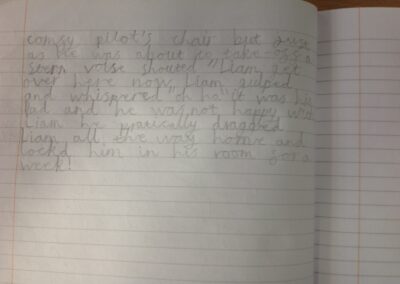 comsy pilot's chair but just
as he was about to take off a
stern voise shouted "Liam get
over here now" Liam gulped
and whispered "oh no" it was his
Dad and he was not happy with
Liam he pratically dragged
Liam all the way home and
locked him in his room for a
week!